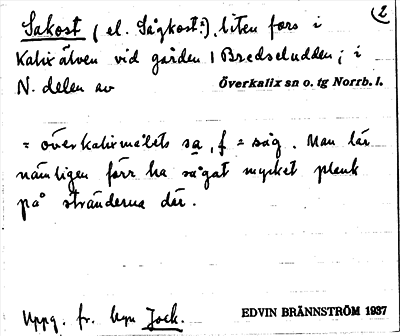 2
Sakost (el. Sågkost?), liten fors i
Kalix älven vid gården i Bredseludden; i
N. delen av Överkalix sn o. tg Norrb. l.
= överkalixmålets sa, f = såg. Man lär
nämligen förr ha sågat mycket plank
på stränderna där.
Uppg. fr. byn Jock. EDVIN BRÄNNSTRÖM 1937